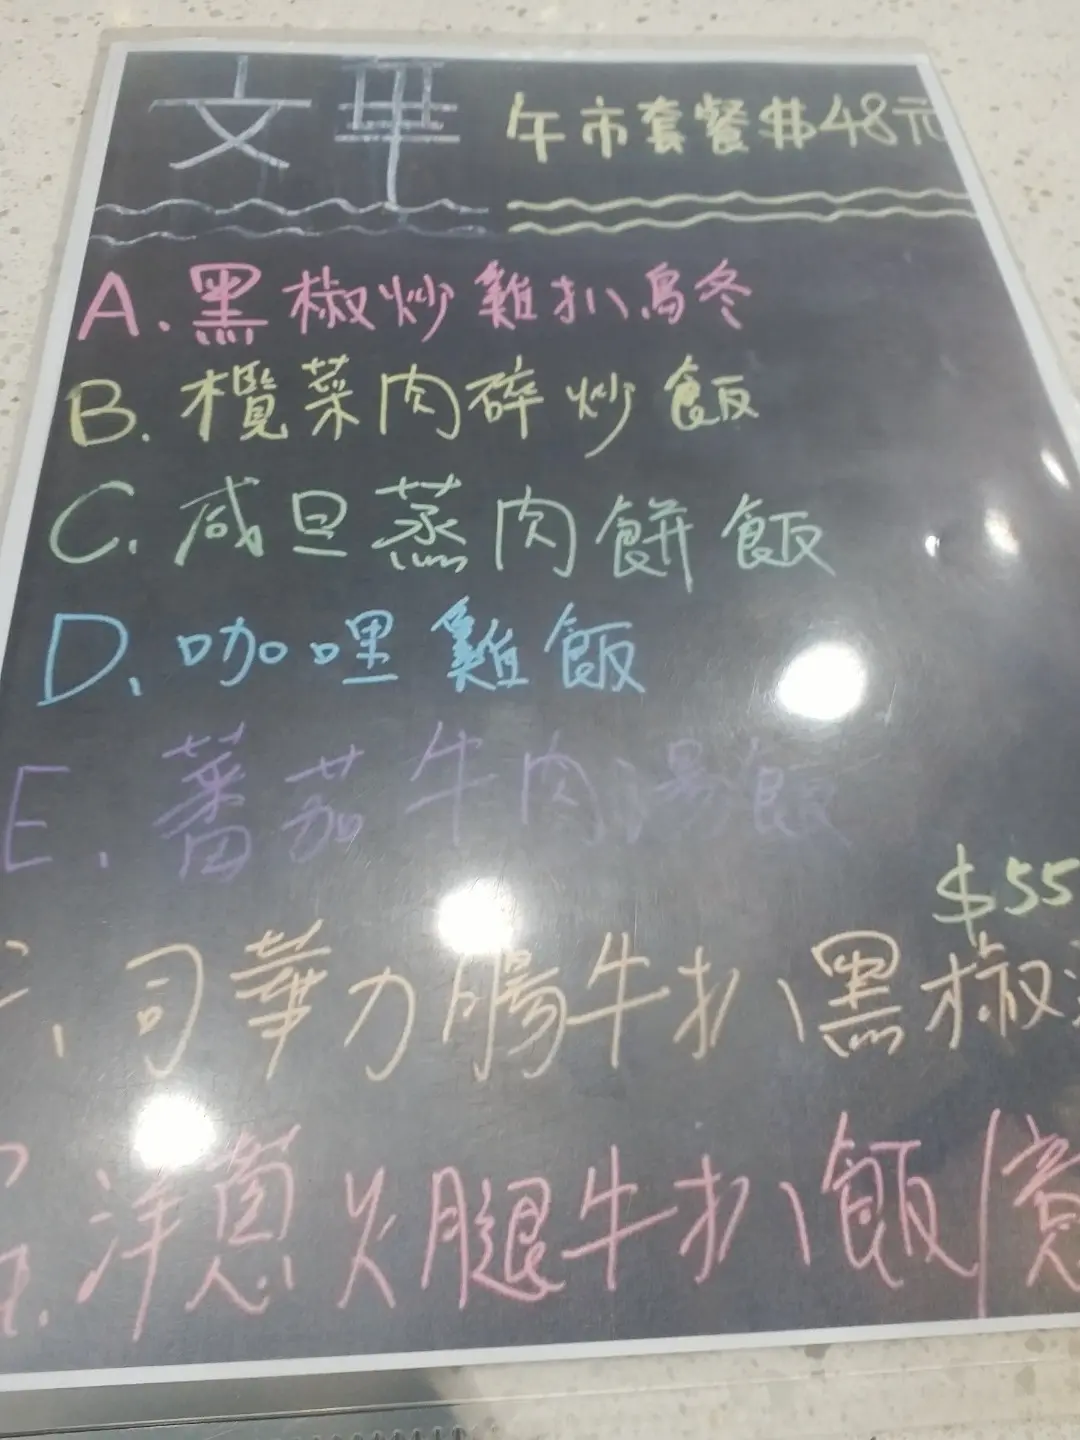 文華 午市套餐$48元
A. 黑椒炒雞扒烏冬
B. 欖菜肉碎炒飯
C. 咸旦蒸肉餅飯
D. 咖哩雞飯
E. 蕃茄牛肉湯飯
$55
司華力腸牛扒、黑椒
洋葱火腿牛扒、飯/意